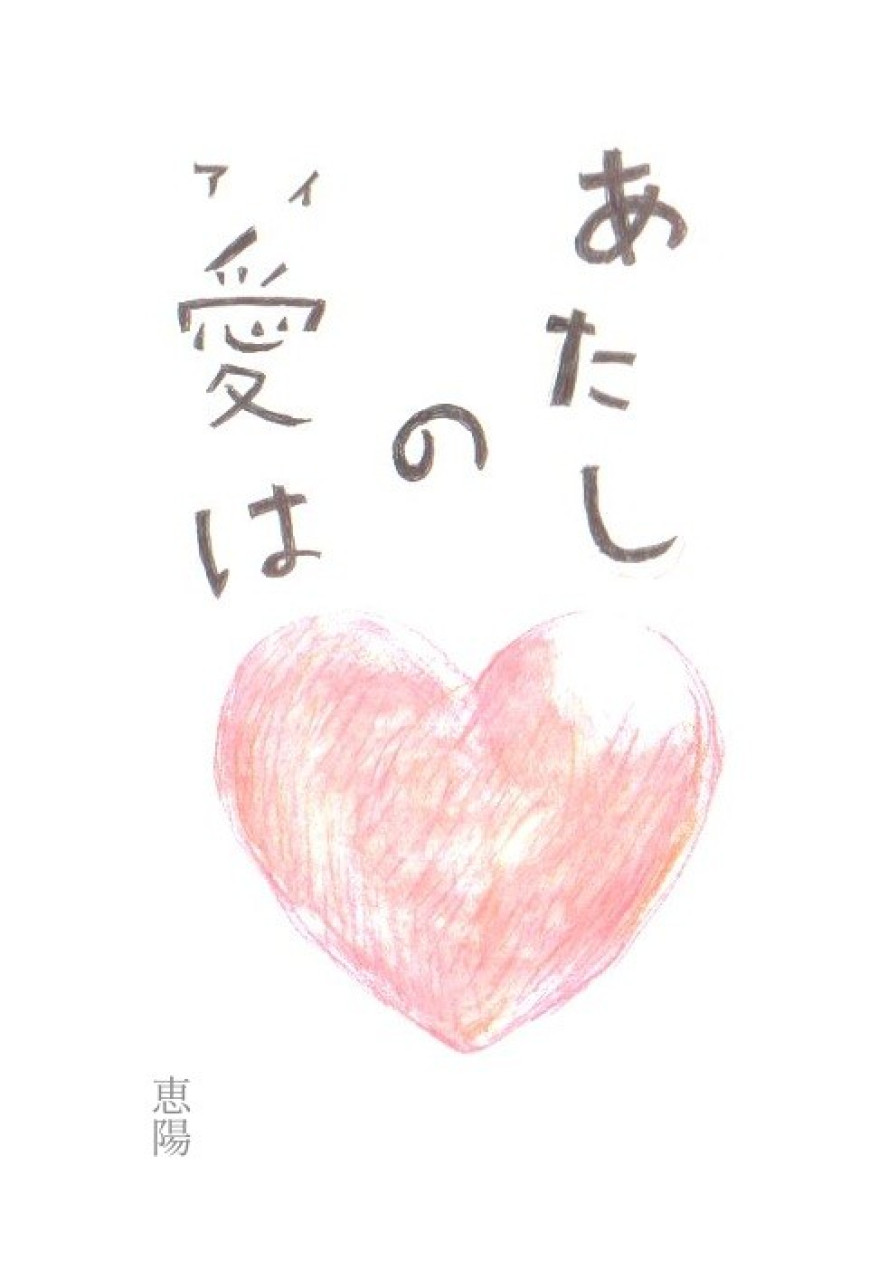 あたし
の
アイ
愛は
恵陽